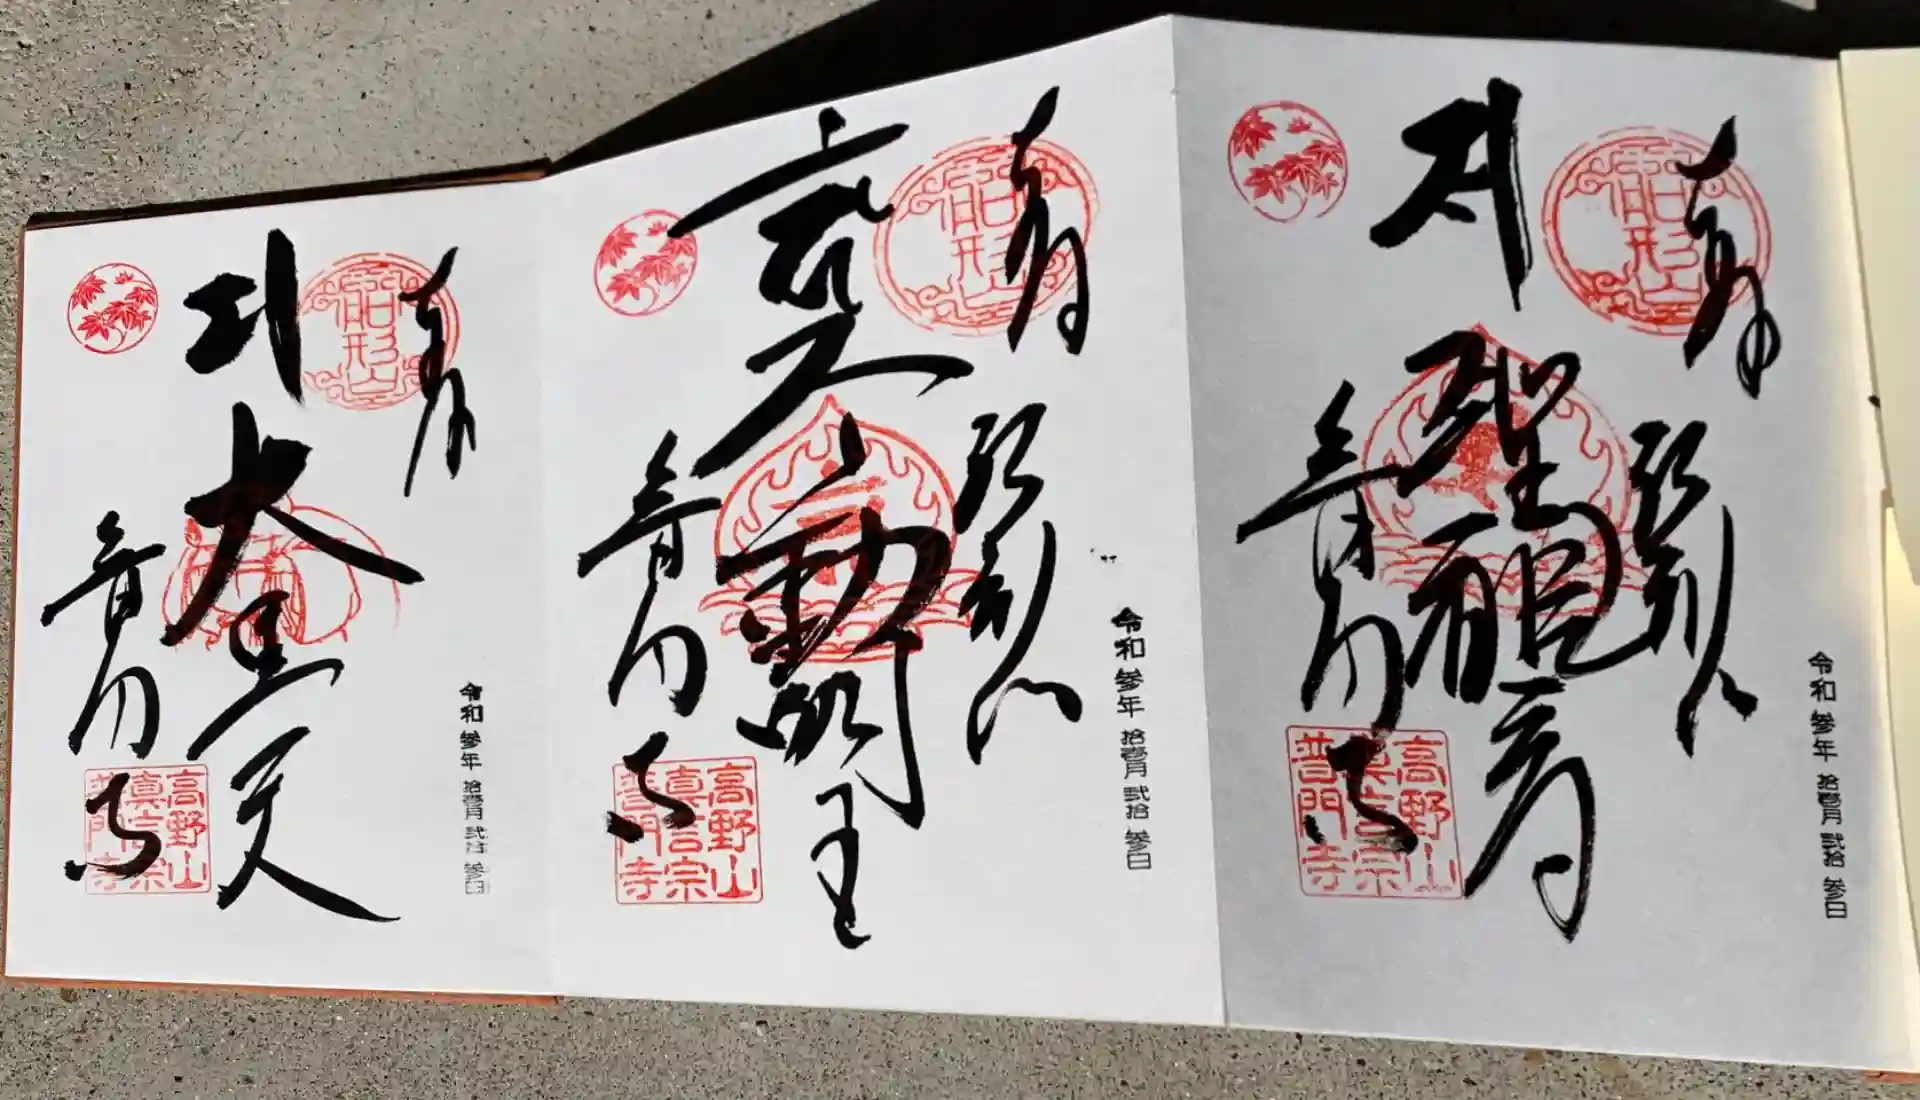 奉拝
船形山
船形山
聖観音
普門寺
高野山
真言宗
普門寺
令和参年拾壹月貳拾参日
奉拝
船形山
船形山
不動明王
普門寺
高野山
真言宗
普門寺
令和参年拾壹月貳拾参日
奉拝
船形山
大黒天
普門寺
高野山
真言宗
普門寺
令和参年拾壹月貳拾参日